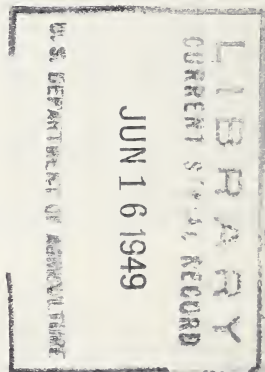 LIBRARY
CURRENT SERIAL RECORD
JUN 16 1949
U. S. DEPARTMENT OF AGRICULTURE